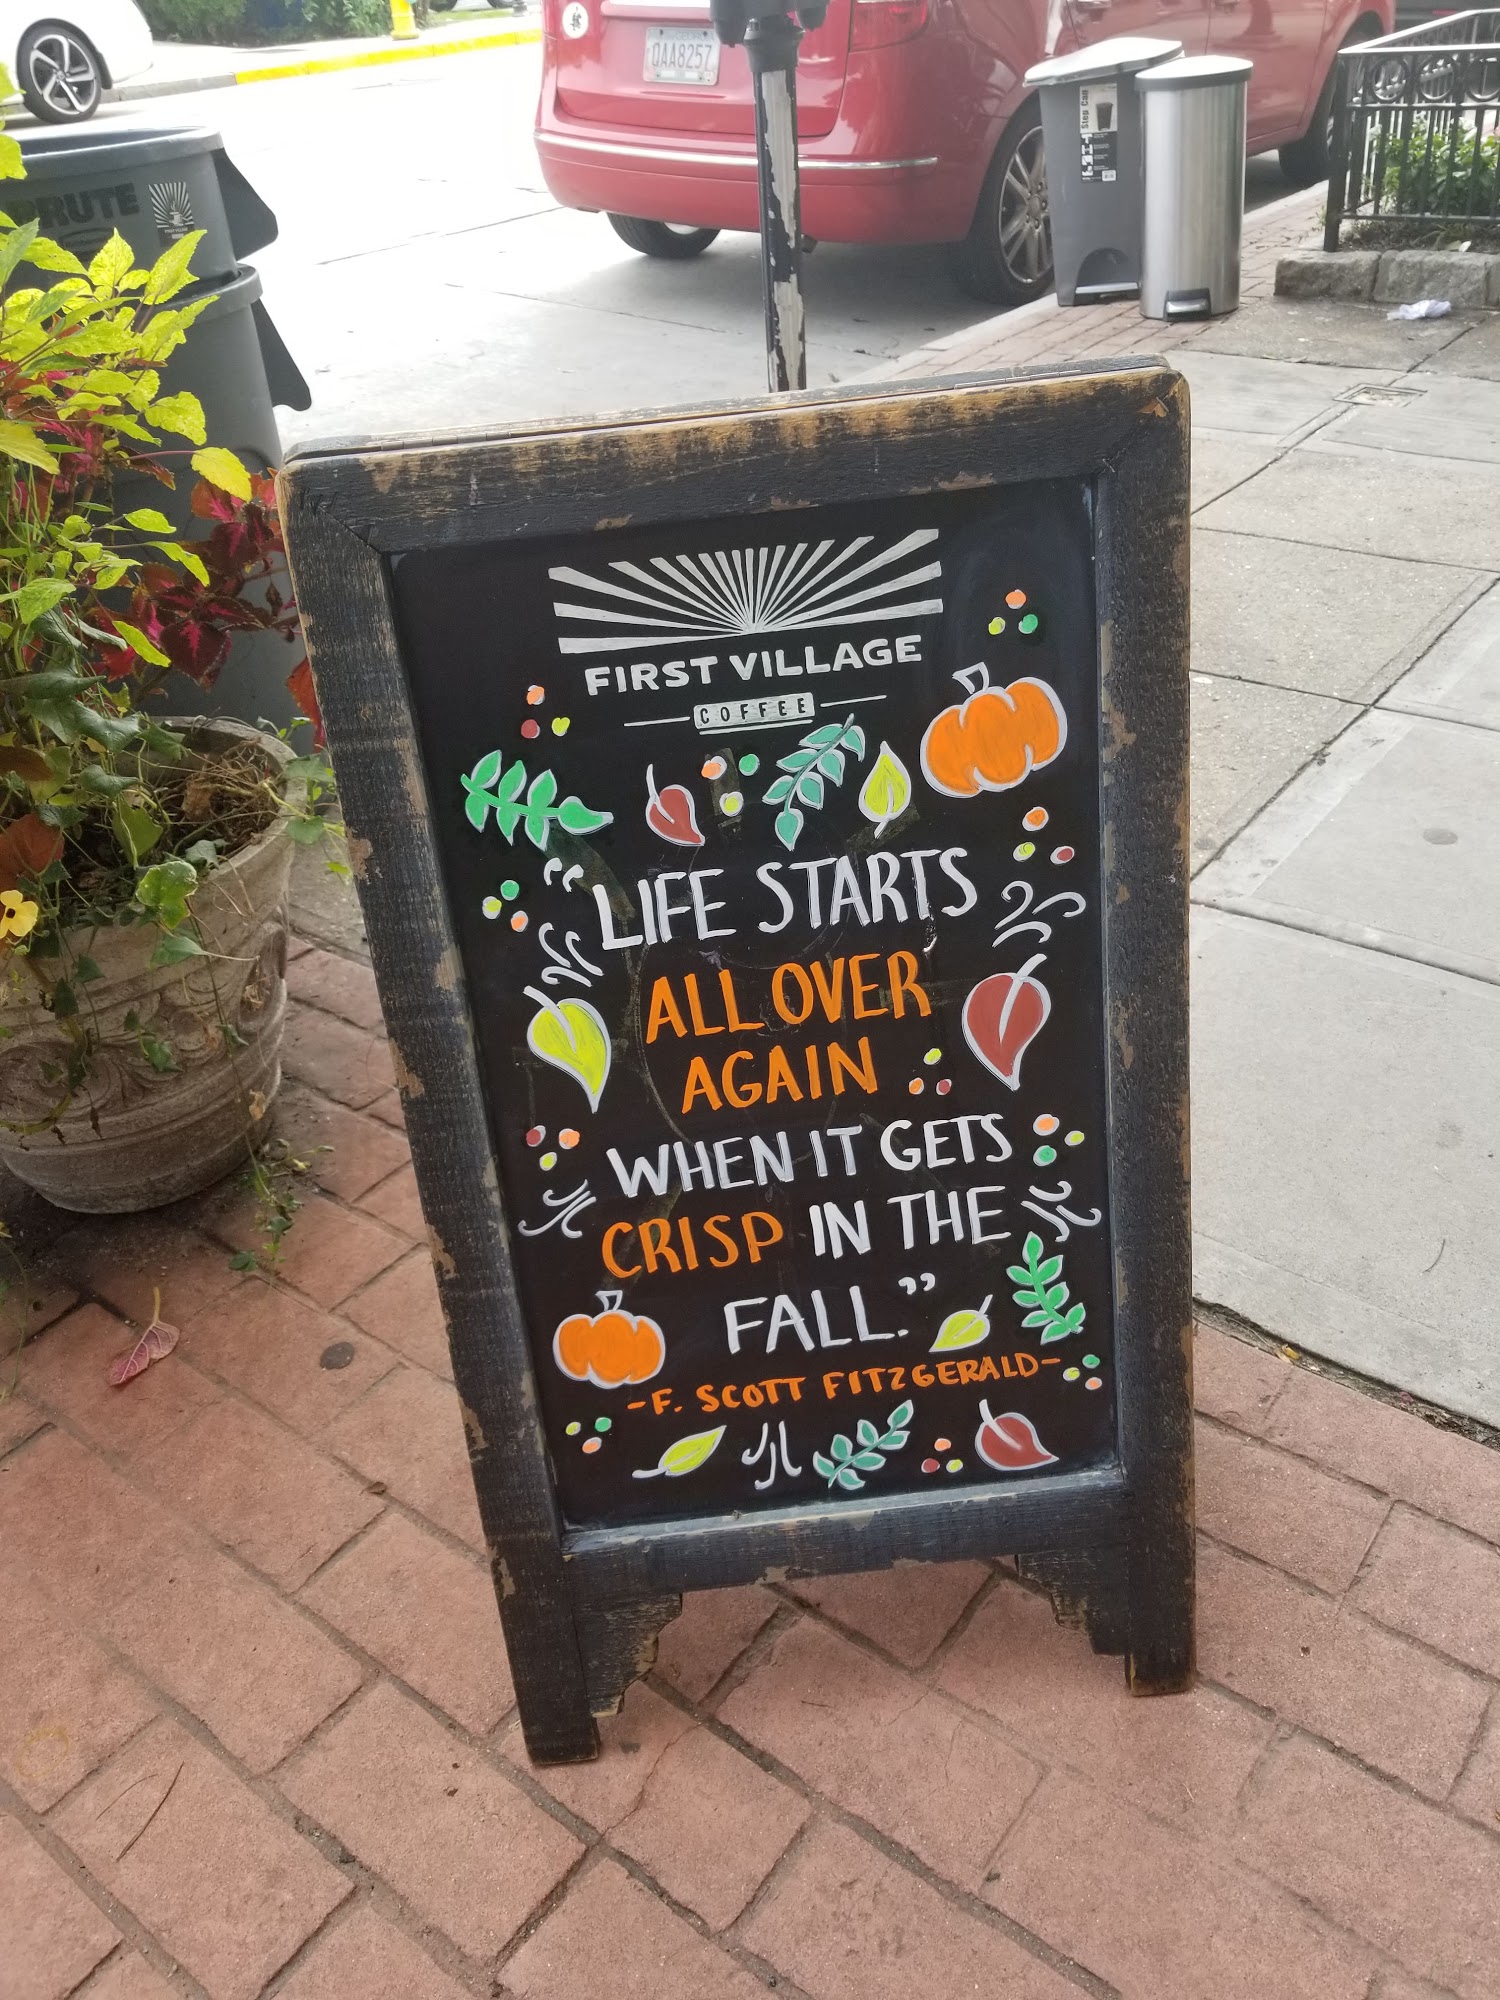 QAA8257
Step Can
BRUTE
FIRST VILLAGE
COFFEE
“LIFE STARTS
ALL OVER
AGAIN
WHEN IT GETS
CRISP IN THE
FALL.”
-F. SCOTT FITZGERALD-